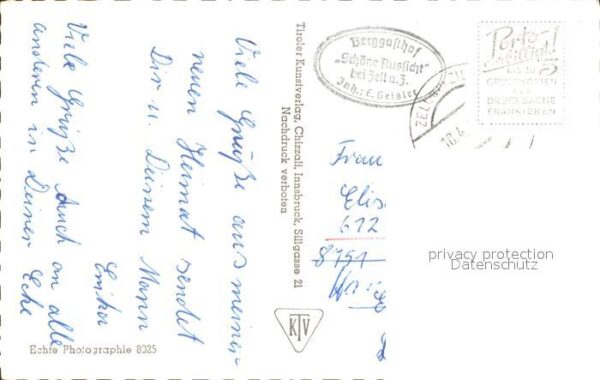 Viele Grüße aus meiner
neuen Heimat sendet
Dir u. Deinem Mann
Erika
Viele Grüße Auch an alle
anderen in Deiner Ecke
Echte Photographie 8025
Tiroler Kunstverlag, Chizzali, Innsbruck, Sillgasse 21
Nachdruck verboten
KTV
Berggasthof
„Schöne Aussicht"
bei Zell a. Z.
Inh.: E. Geisler
Porto
billigst!
BIS ZU
GRUSSWORTEN
ALS
DRUCKSACHE
FRANKIEREN
Frau
Elis
612
8751
privacy protection
Datenschutz